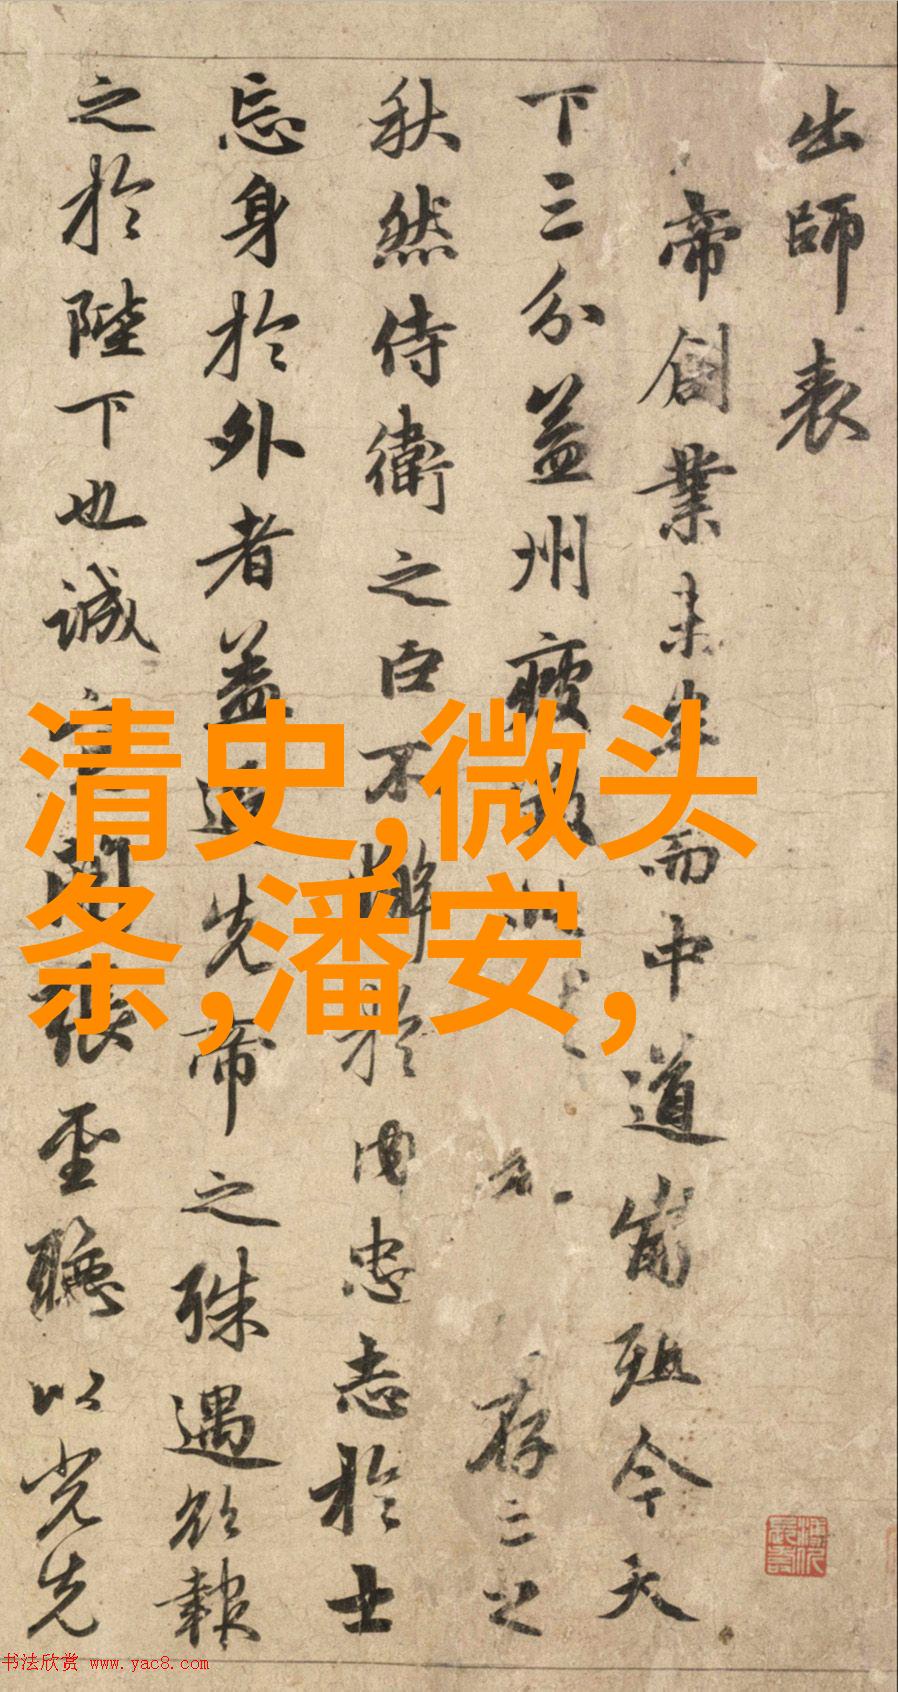 出師表
帝創業未半而中道崩殂今天
下三分益州疲敝 存亡之
秋然侍衛之臣不懈於内忠志於士
忘身於外者蓋追先帝之殊遇欲報
之於陛下也誠宜開張聖聽以光先
清史,微头
条,潘安,
书法欣赏 www.yac8.com